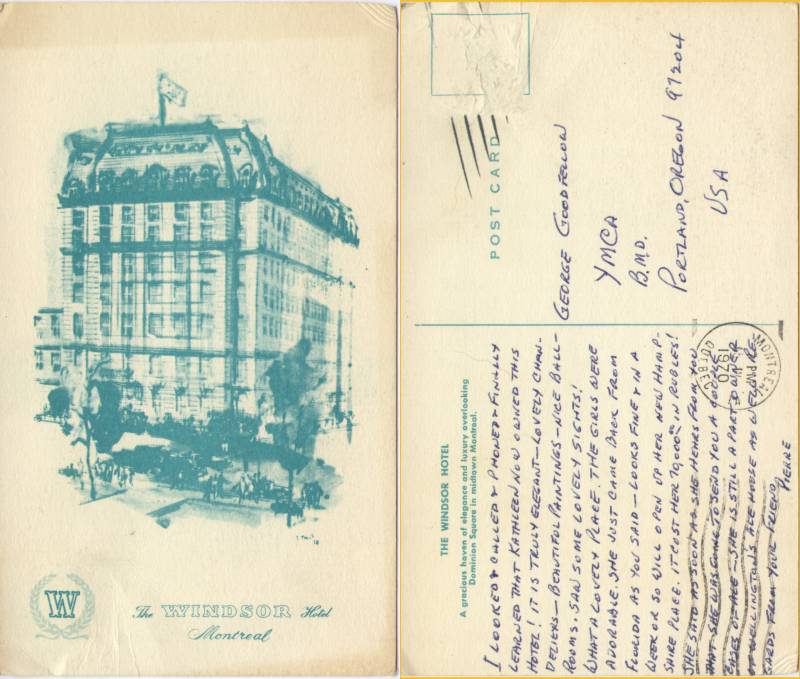 W
The WINDSOR Hotel
Montreal
POST CARD
GEORGE GOODFELLOW
YMCA
B.M.D.
PORTLAND, OREGON 97204
USA
THE WINDSOR HOTEL
A gracious haven of elegance and luxury overlooking
Dominion Square in midtown Montreal.
I LOOKED & CALLED & PHONED & FINALLY
LEARNED THAT KATHLEEN NOW OWNED THIS
HOTEL! IT IS TRULY ELEGANT - LOVELY CHAN-
DELIERS - BEAUTIFUL PAINTINGS - NICE BALL-
ROOMS. SAW SOME LOVELY SIGHTS!
WHAT A LOVELY PLACE. THE GIRLS WERE
ADORABLE. SHE JUST CAME BACK FROM
FLORIDA AS YOU SAID - LOOKS FINE & IN A
WEEK OR SO WILL OPEN UP HER NEW HAMP-
SHIRE PLACE. IT COST HER 70,000 IN RUBLES!
SHE SAID AS SOON AS SHE HEARS FROM YOU
THAT SHE WAS GOING TO SEND YOU A COUPLE
CASES OF ALE - SHE IS STILL A PART OWNER
OF WELLINGTONS ALE HOUSE AS WELL. RE-
GARDS FROM YOUR FRIEND,
PIERRE
MONTREAL
PM
1970
QUEBEC